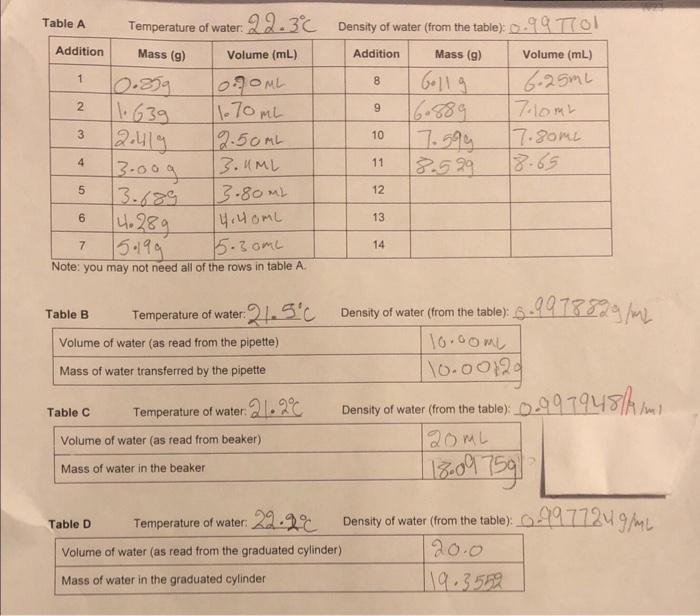 Table A Temperature of water: 22.3°C Density of water (from the table): 0.997701
Addition Mass (g) Volume (mL) Addition Mass (g) Volume (mL)
1 0.85g 0.90mL 8 6.11g 6.25mL
2 1.63g 1.70mL 9 6.88g 7.10mL
3 2.41g 2.50mL 10 7.59g 7.80mL
4 3.00g 11 8.52g 8.65
5 3.68g 3.80mL 12
6 4.28g 4.40mL 13
7 5.19g 5.30mL 14
Note: you may not need all of the rows in table A.
Table B Temperature of water: 21.5°C Density of water (from the table): 0.997882g/mL
Volume of water (as read from the pipette) 10.00mL
Mass of water transferred by the pipette
Table C Temperature of water: 21.2°C Density of water (from the table): 0.997948
Volume of water (as read from beaker) 20mL
Mass of water in the beaker 18.0975g
Table D Temperature of water: 22.2°C Density of water (from the table): 0.997724g/mL
Volume of water (as read from the graduated cylinder) 20.0
Mass of water in the graduated cylinder